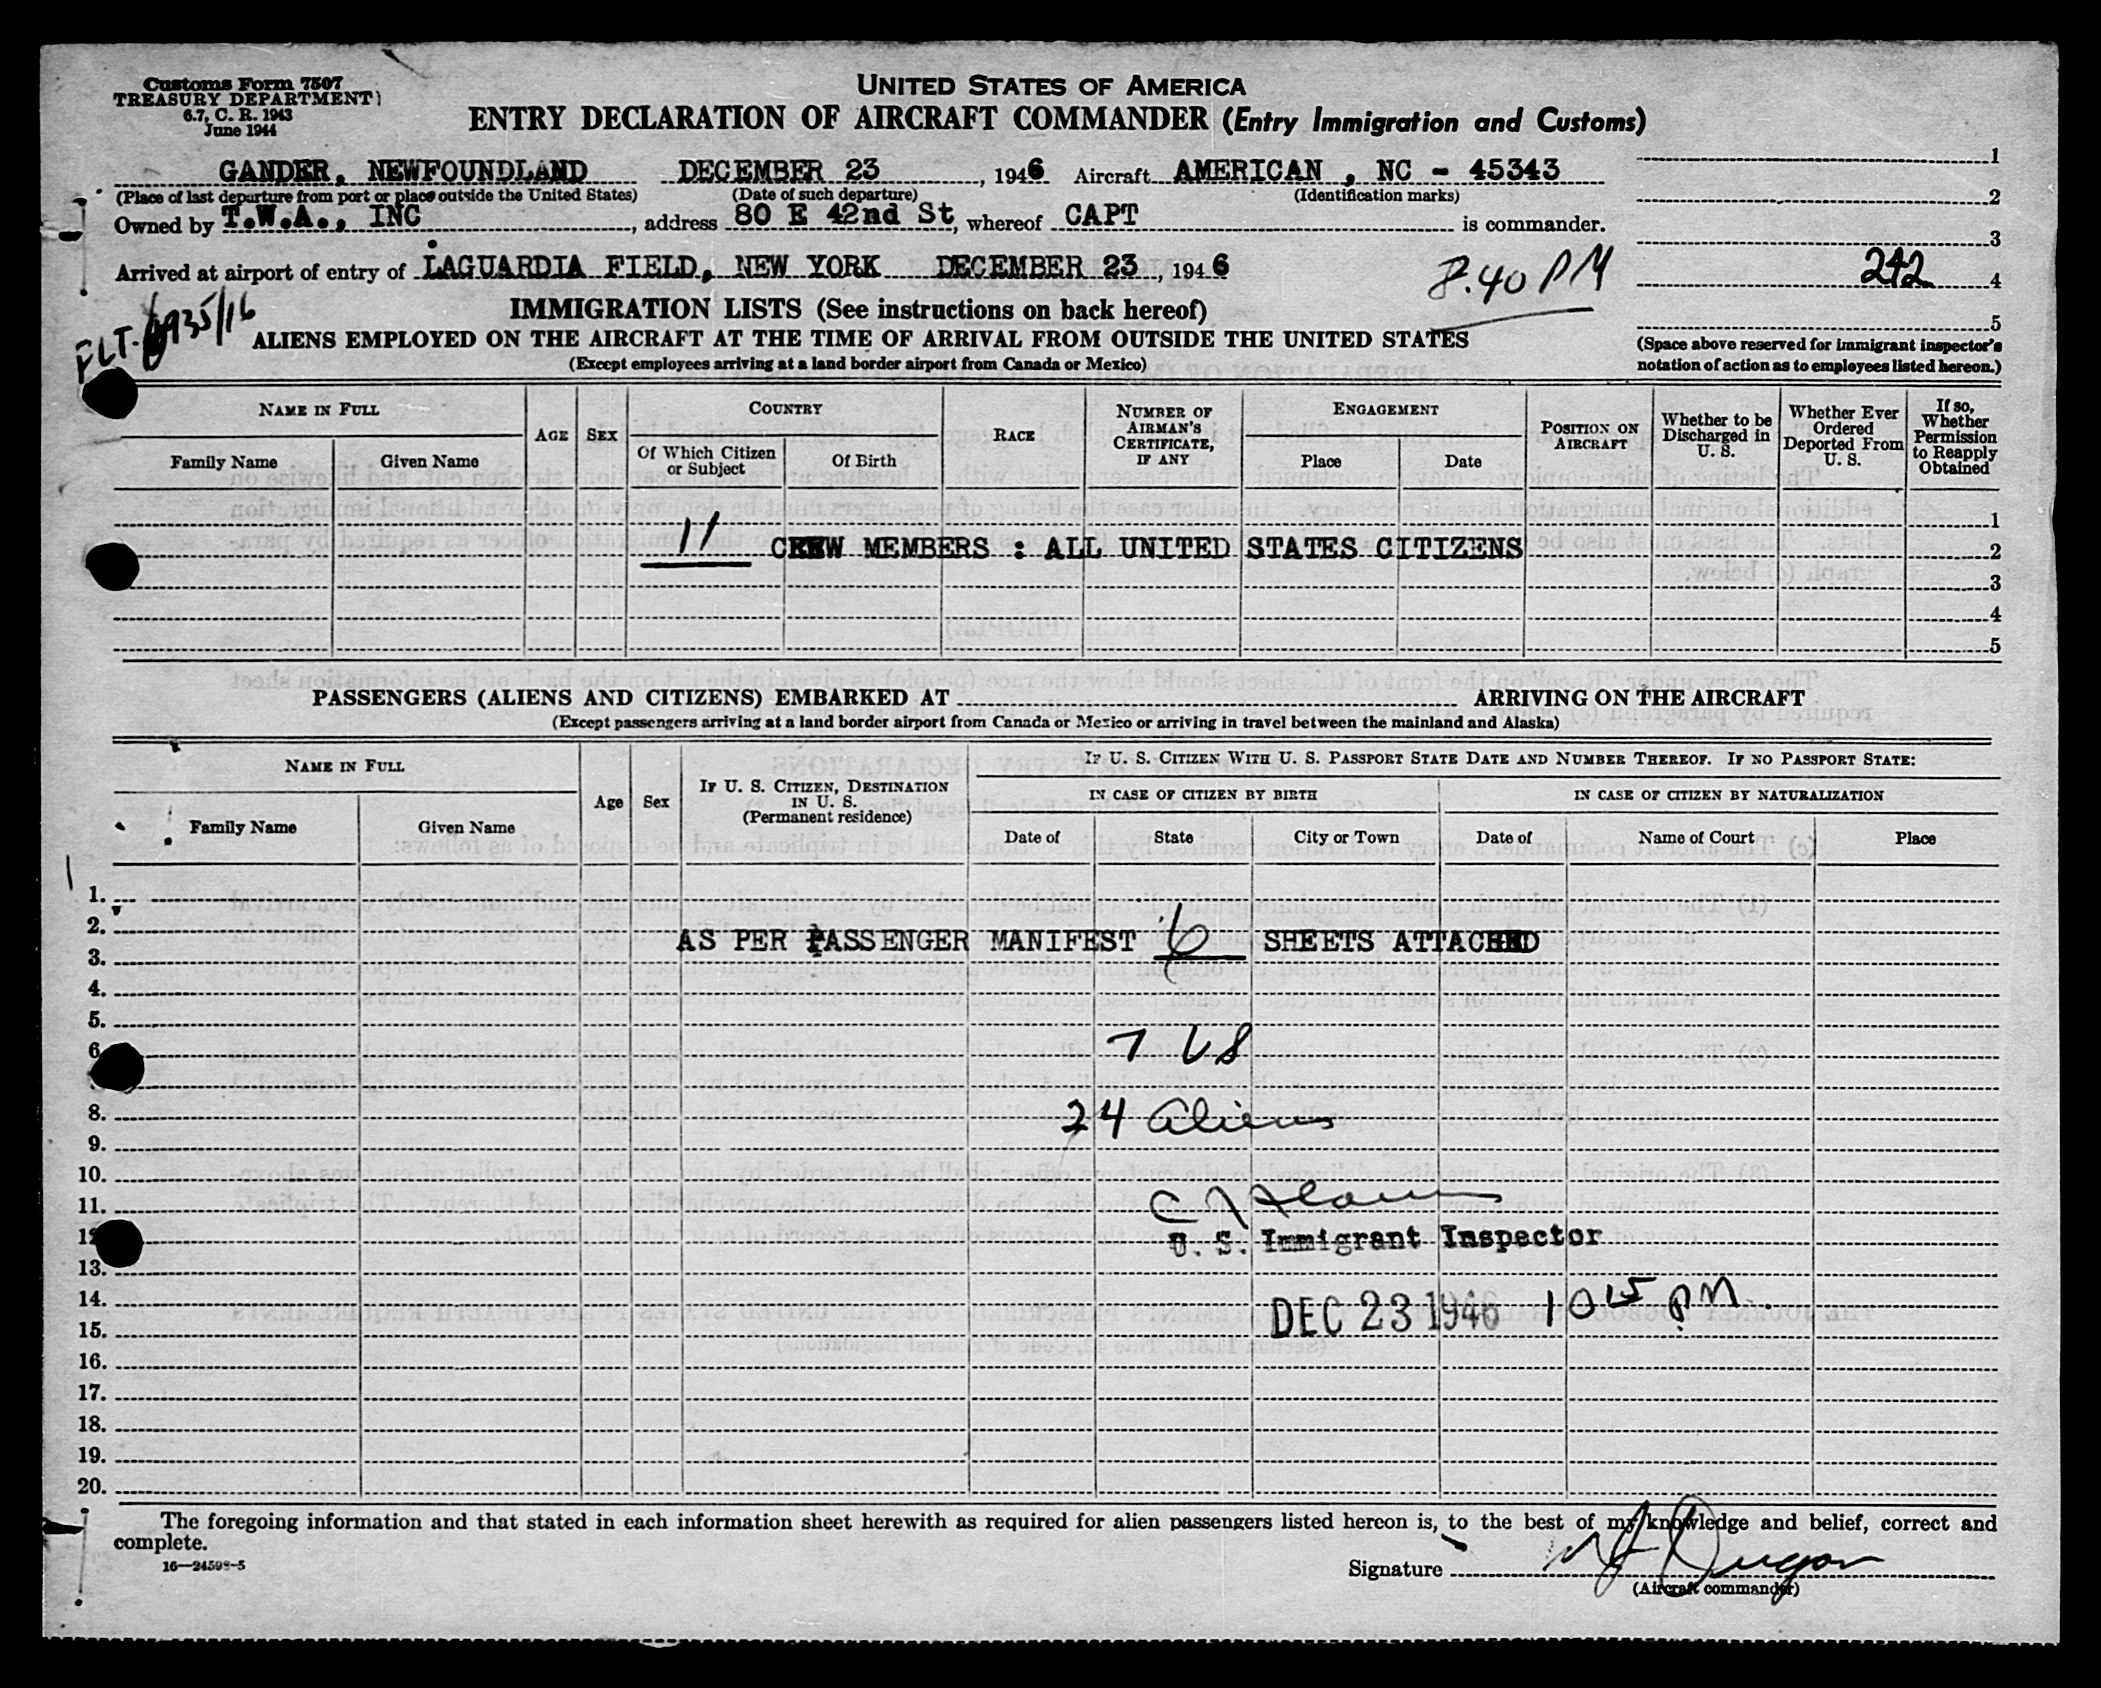 Customs Form 7507
TREASURY DEPARTMENT
6.7, C. R. 1943
June 1944
UNITED STATES OF AMERICA
ENTRY DECLARATION OF AIRCRAFT COMMANDER (Entry Immigration and Customs)
GANDER, NEWFOUNDLAND DECEMBER 23, 1946 Aircraft AMERICAN , NC - 45343
(Place of last departure from port or place outside the United States) (Date of such departure) (Identification marks)
Owned by T.W.A., INC, address 80 E 42nd St, whereof CAPT is commander.
Arrived at airport of entry of LAGUARDIA FIELD, NEW YORK DECEMBER 23, 1946
8.40 PM
1
2
3
242 4
5
(Space above reserved for immigrant inspector's notation of action as to employees listed hereon.)
FLT. 6935/16
IMMIGRATION LISTS (See instructions on back hereof)
ALIENS EMPLOYED ON THE AIRCRAFT AT THE TIME OF ARRIVAL FROM OUTSIDE THE UNITED STATES
(Except employees arriving at a land border airport from Canada or Mexico)
NAME IN FULL
Family Name
Given Name
AGE
SEX
COUNTRY
Of Which Citizen or Subject
Of Birth
RACE
NUMBER OF AIRMAN'S CERTIFICATE, IF ANY
ENGAGEMENT
Place
Date
POSITION ON AIRCRAFT
Whether to be Discharged in U. S.
Whether Ever Ordered Deported From U. S.
If so, Whether Permission to Reapply Obtained
1
11 CREW MEMBERS : ALL UNITED STATES CITIZENS 2
3
4
5
PASSENGERS (ALIENS AND CITIZENS) EMBARKED AT ARRIVING ON THE AIRCRAFT
(Except passengers arriving at a land border airport from Canada or Mexico or arriving in travel between the mainland and Alaska)
NAME IN FULL
Family Name
Given Name
Age
Sex
IF U. S. CITIZEN, DESTINATION IN U. S.
(Permanent residence)
IF U. S. CITIZEN WITH U. S. PASSPORT STATE DATE AND NUMBER THEREOF. IF NO PASSPORT STATE:
IN CASE OF CITIZEN BY BIRTH
Date of
State
City or Town
IN CASE OF CITIZEN BY NATURALIZATION
Date of
Name of Court
Place
1.
2.
AS PER PASSENGER MANIFEST 6 SHEETS ATTACHED
3.
4.
5.
6
7 US
8. 24 aliens
9.
10.
11.
U. S. Immigrant Inspector
13.
14. DEC 23 1946 10 15 PM.
15.
16.
17.
18.
19.
20.
The foregoing information and that stated in each information sheet herewith as required for alien passengers listed hereon is, to the best of my knowledge and belief, correct and
complete.
16—24598-5
Signature
(Aircraft commander)